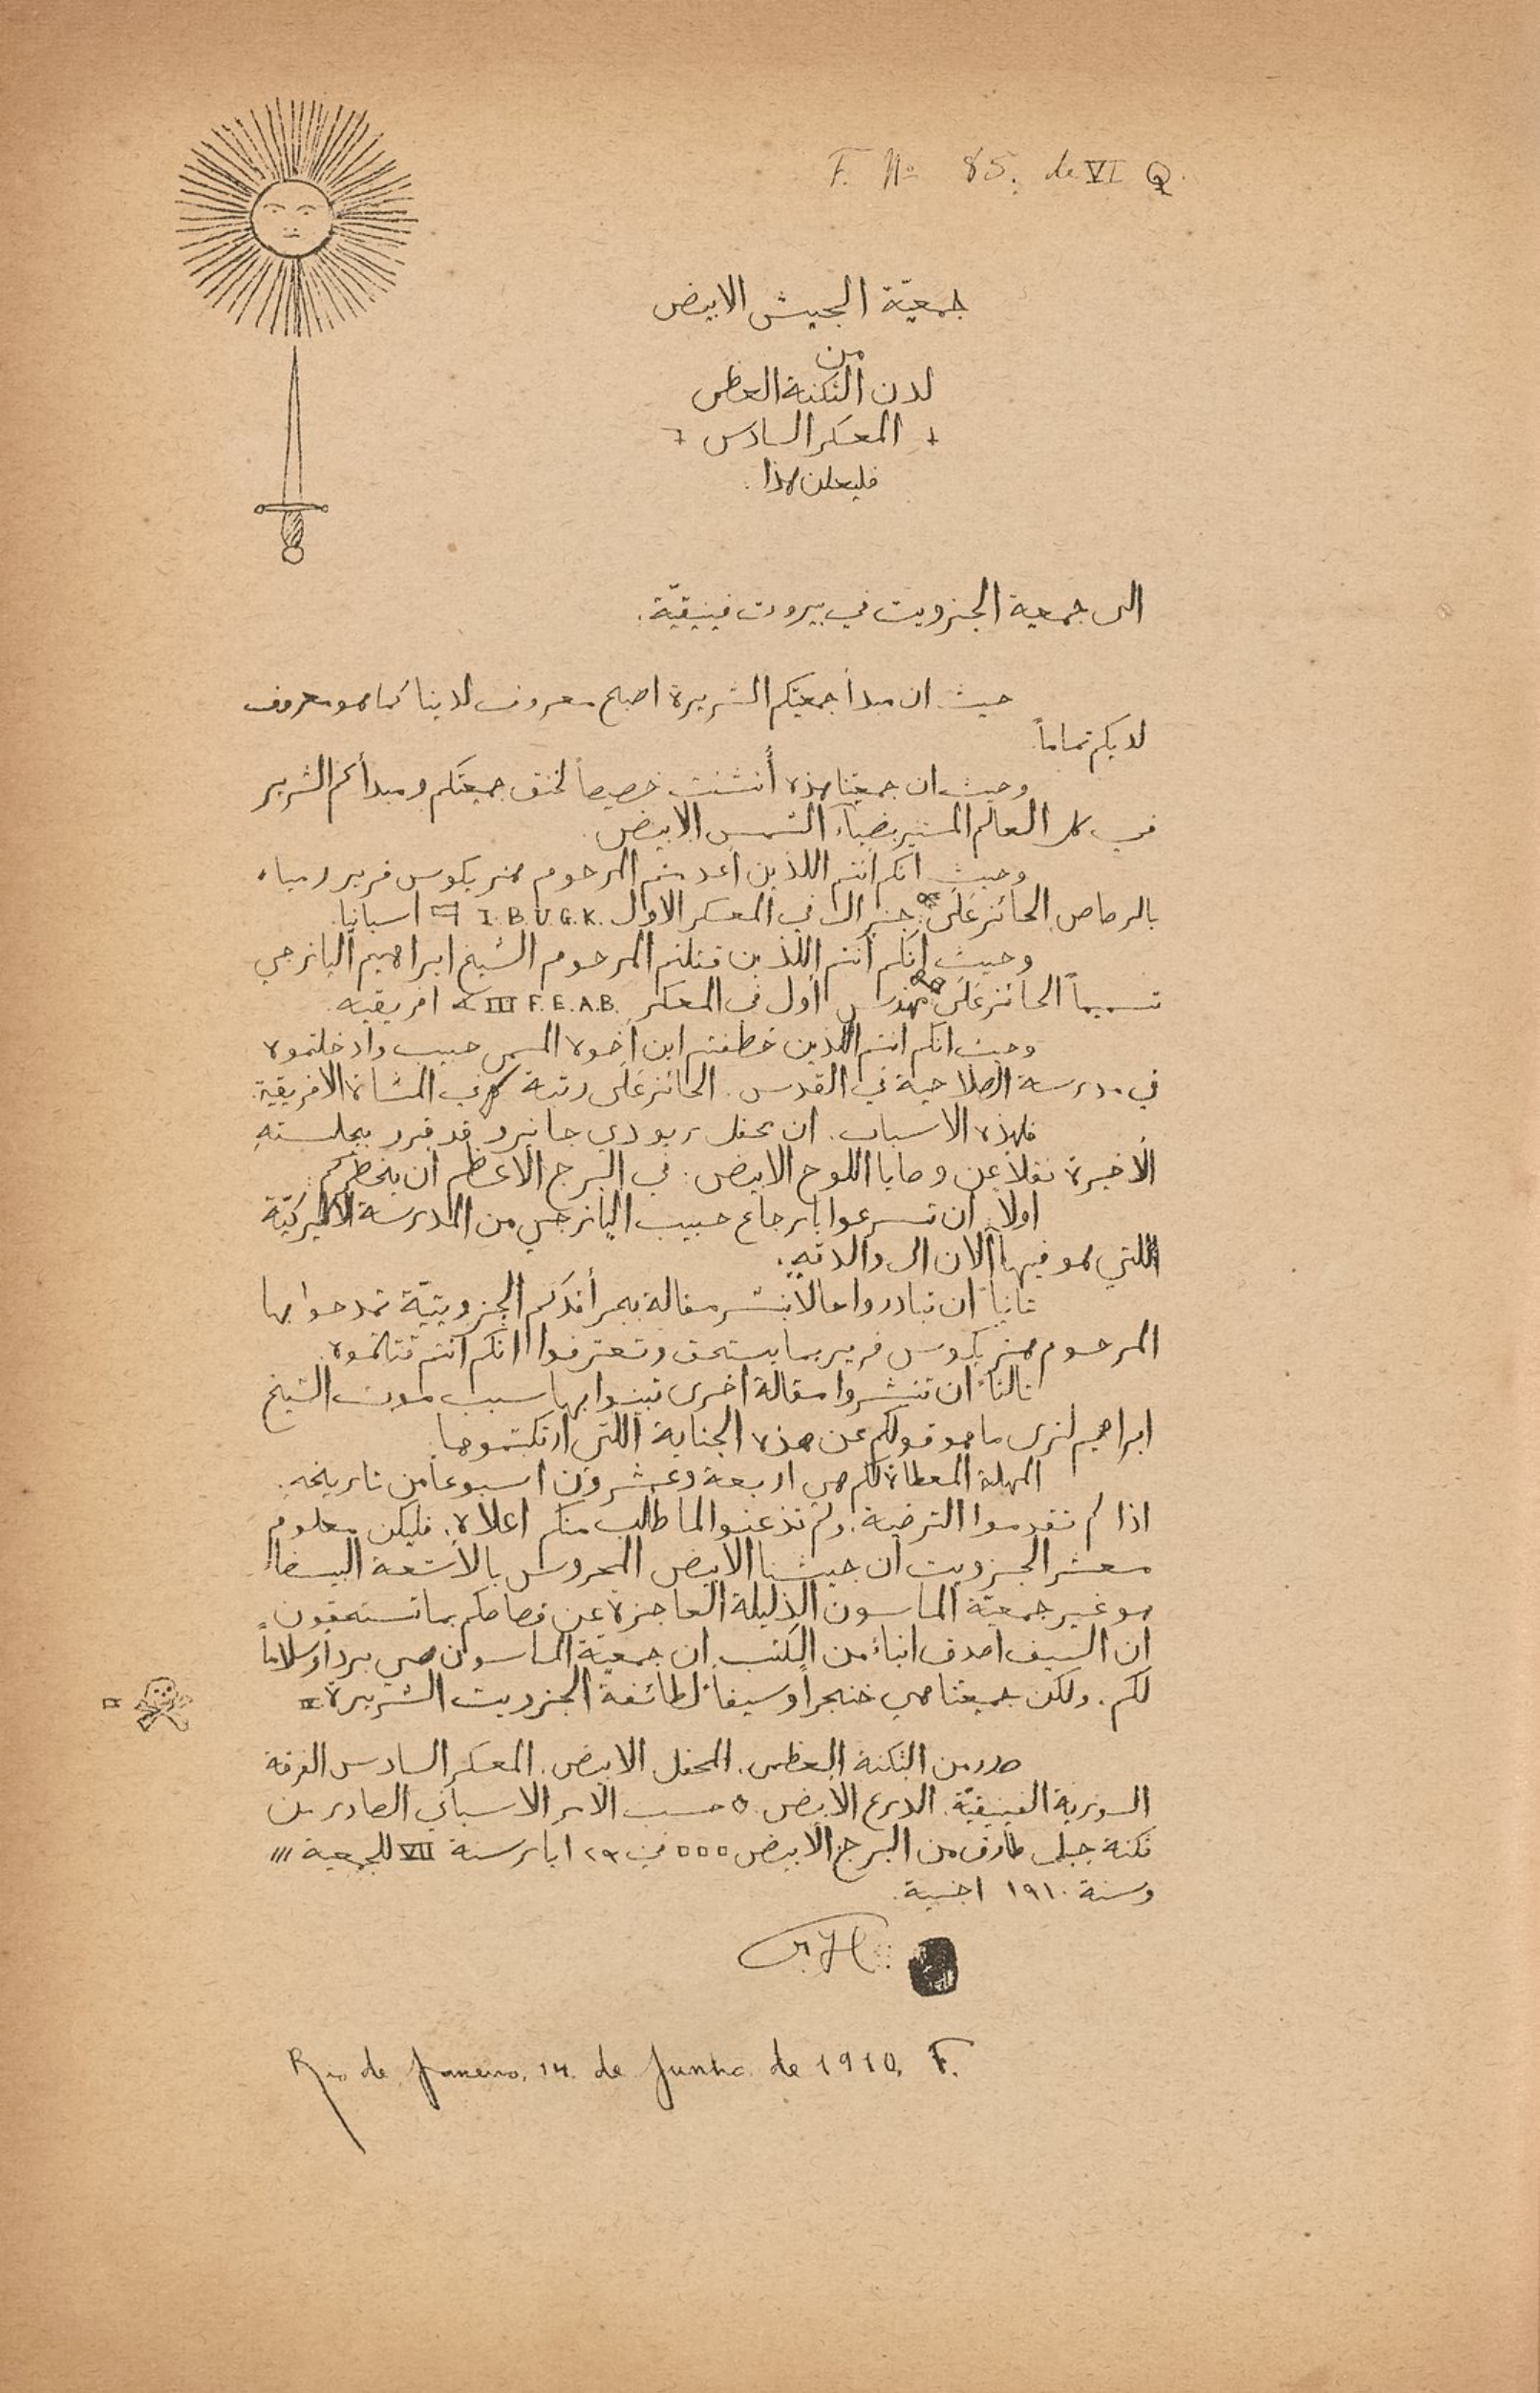 F. Nº 85. de VI Q.
جمعيّة الجيش الابيض
من
لدن الثكنة العظمى
المعسكر السادس
فليعلن هذا.
الى جمعية الجزويت في بيروت فينيقيّة.
حيث ان مبدأ جمعيتكم الشريرة اصبح معروف لدينا كما هو معروف
لديكم تماماً.
وحيث ان جمعيتنا هذه أنشئت خصيصاً لخنق جمعيتكم ومبدأكم الشرير
في كل العالم المستنير بضياء الشمس الابيض.
وحيث انكم انتم اللذين أعدمتم المرحوم هنريكوس فرير رمياء
بالرصاص الحائز على جنرال في المعسكر الاول I.B.U.G.K. اسبانيا.
وحيث إنكم أنتم اللذين قتلتم المرحوم الشيخ ابراهيم اليازجي
تسميماً الحائز على مهندس أول في المعسكر III F.E.A.B. افريقيه.
وحيث انكم انتم اللذين خطفتم ابن أخوه المسمى حبيب وادخلتموه
في مدرسة الصلاحية في القدس. الحائز على رتبة في المشاة الافريقية.
فلهذه الاسباب. ان محفل ريودي جانيرو قد قرر بجلسته
الأخيرة نقلاً عن وصايا اللوح الابيض. في البرج الاعظم ان يخطركم:
اولاً. ان تسرعوا بإرجاع حبيب اليازجي من المدرسة الاكليركيّة
اللتي هو فيها الان الى والدته.
ثانياً ان تبادروا حالاً بنشر مقالة بجرائدكم الجزويتيّة تمدحوا بها
المرحوم هنريكوس فرير بما يستحق وتعترفوا انكم انتم قتلتموه.
ثالثاً ان تنشروا مقالة اخرى تبينوا بها سبب موت الشيخ
ابراهيم لنرى ما هو قولكم عن هذه الجناية اللتي ارتكبتموها.
المهلة المعطاة لكم هي اربعة وعشرون اسبوعاً من تاريخه.
اذا لم تقدموا الترضية. ولم تذعنوا لما طلب منكم اعلاه. فليكن معلوم
معشر الجزويت ان جيشنا الابيض المحروس بالأشعة البيضاء
هو غير جمعيّة الماسون الذليلة العاجزة عن قصاصكم بما تستحقون.
ان السيف اصدق انباء من الكتب. ان جمعيّة الماسون هي برداً وسلاماً
لكم. ولكن جمعيتنا هي خنجراً وسيفاً لطائفة الجزويت الشريرة
صدر من الثكنة العظمى. المحفل الابيض. المعسكر السادس الفرقة
السورية الفينيقيّة. الدرع الابيض. حسب الامر الاسباني الصادر من
ثكنة جبل طارق من البرج الابيض في ٢٩ ايار سنة VII للجمعية
وسنة ١٩١٠
Rio de Janeiro, 14 de Junho de 1910. F.